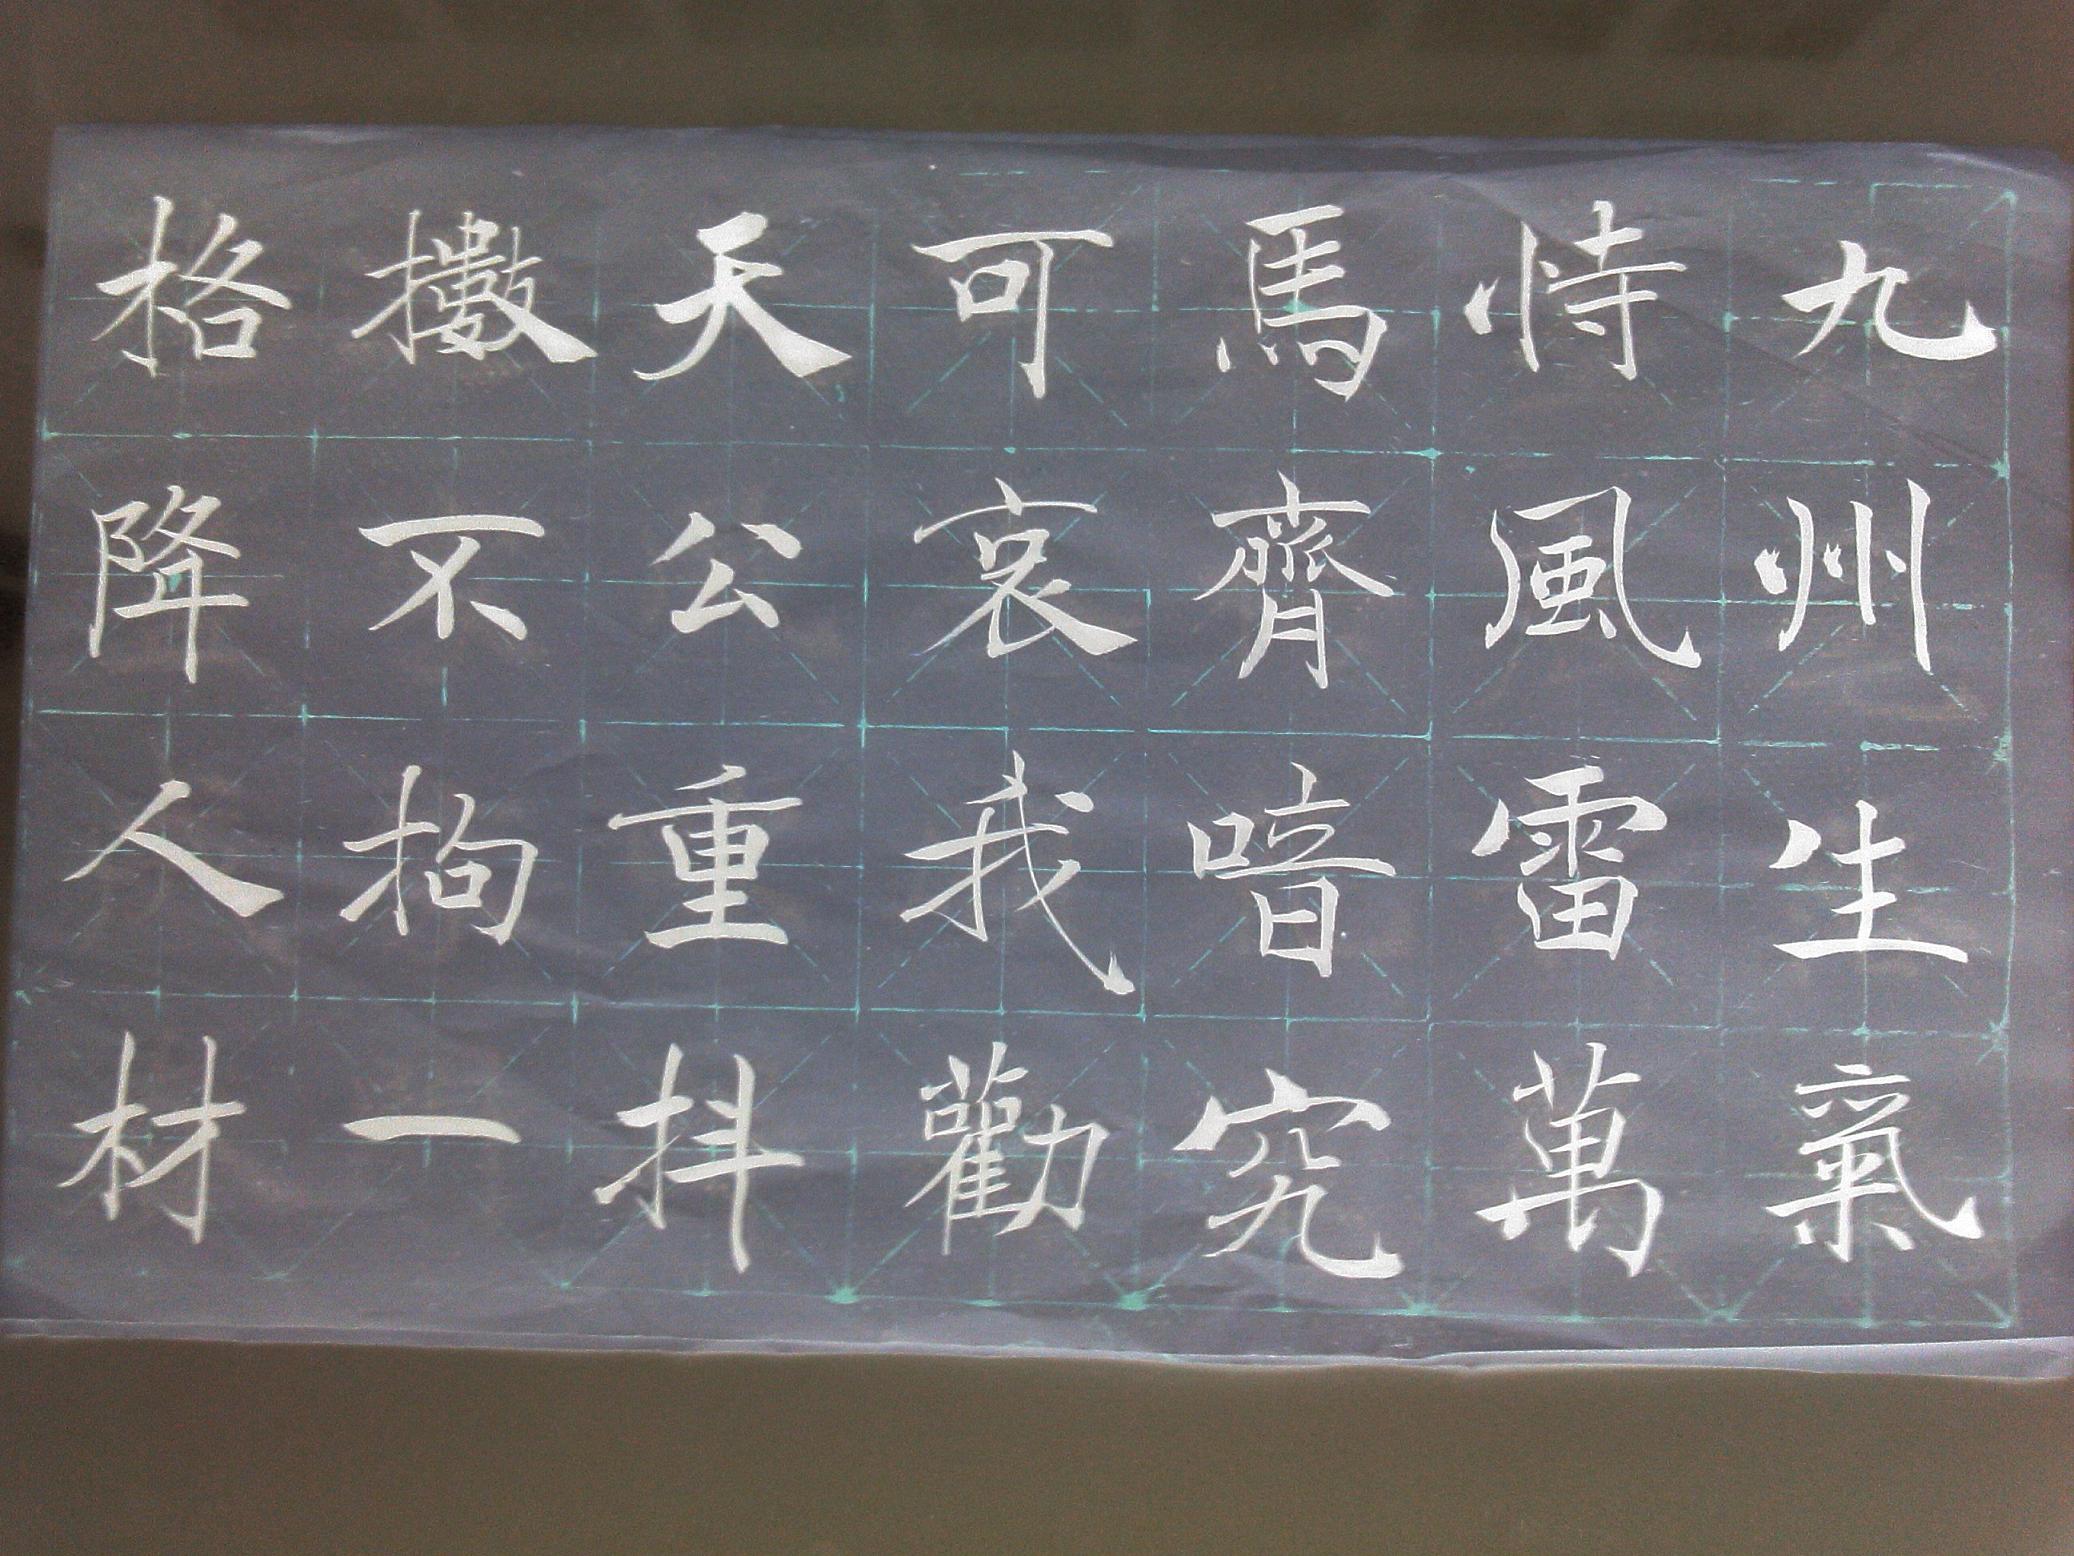 九州生氣
恃風雷萬
馬齊喑究
可哀我勸
天公重抖
擻不拘一
格降人材